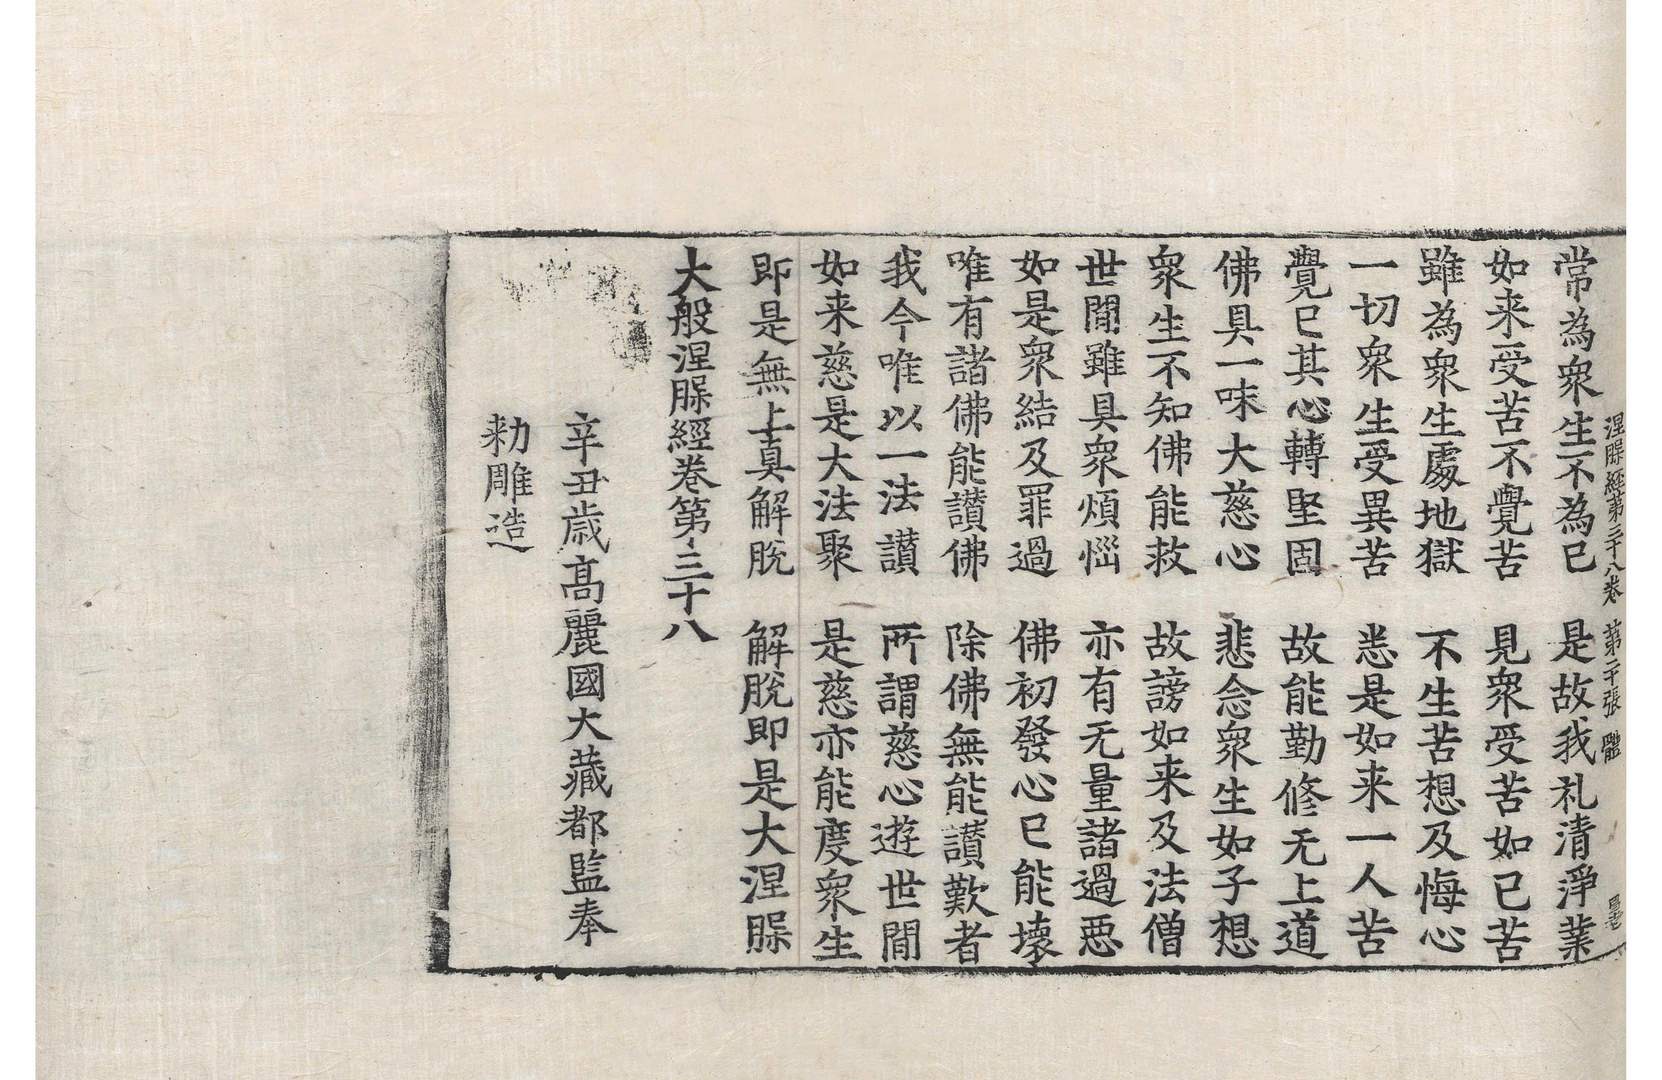 涅槃經第三十八卷 第二十張 體
常為衆生不為已 是故我礼清淨業
如来受苦不覺苦 見衆受苦如已苦
雖為衆生處地獄 不生苦想及悔心
一切衆生受異苦 悉是如来一人苦
覺已其心轉堅固 故能勤修无上道
佛具一味大慈心 悲念衆生如子想
衆生不知佛能救 故謗如来及法僧
世間雖具衆煩惱 亦有无量諸過惡
如是衆結及罪過 佛初發心已能壞
唯有諸佛能讃佛 除佛無能讃歎者
我今唯以一法讃 所謂慈心遊世間
如来慈是大法聚 是慈亦能度衆生
即是無上真解脫 解脫即是大涅槃
大般涅槃經卷第三十八
辛丑歳高麗國大藏都監奉
勑雕造